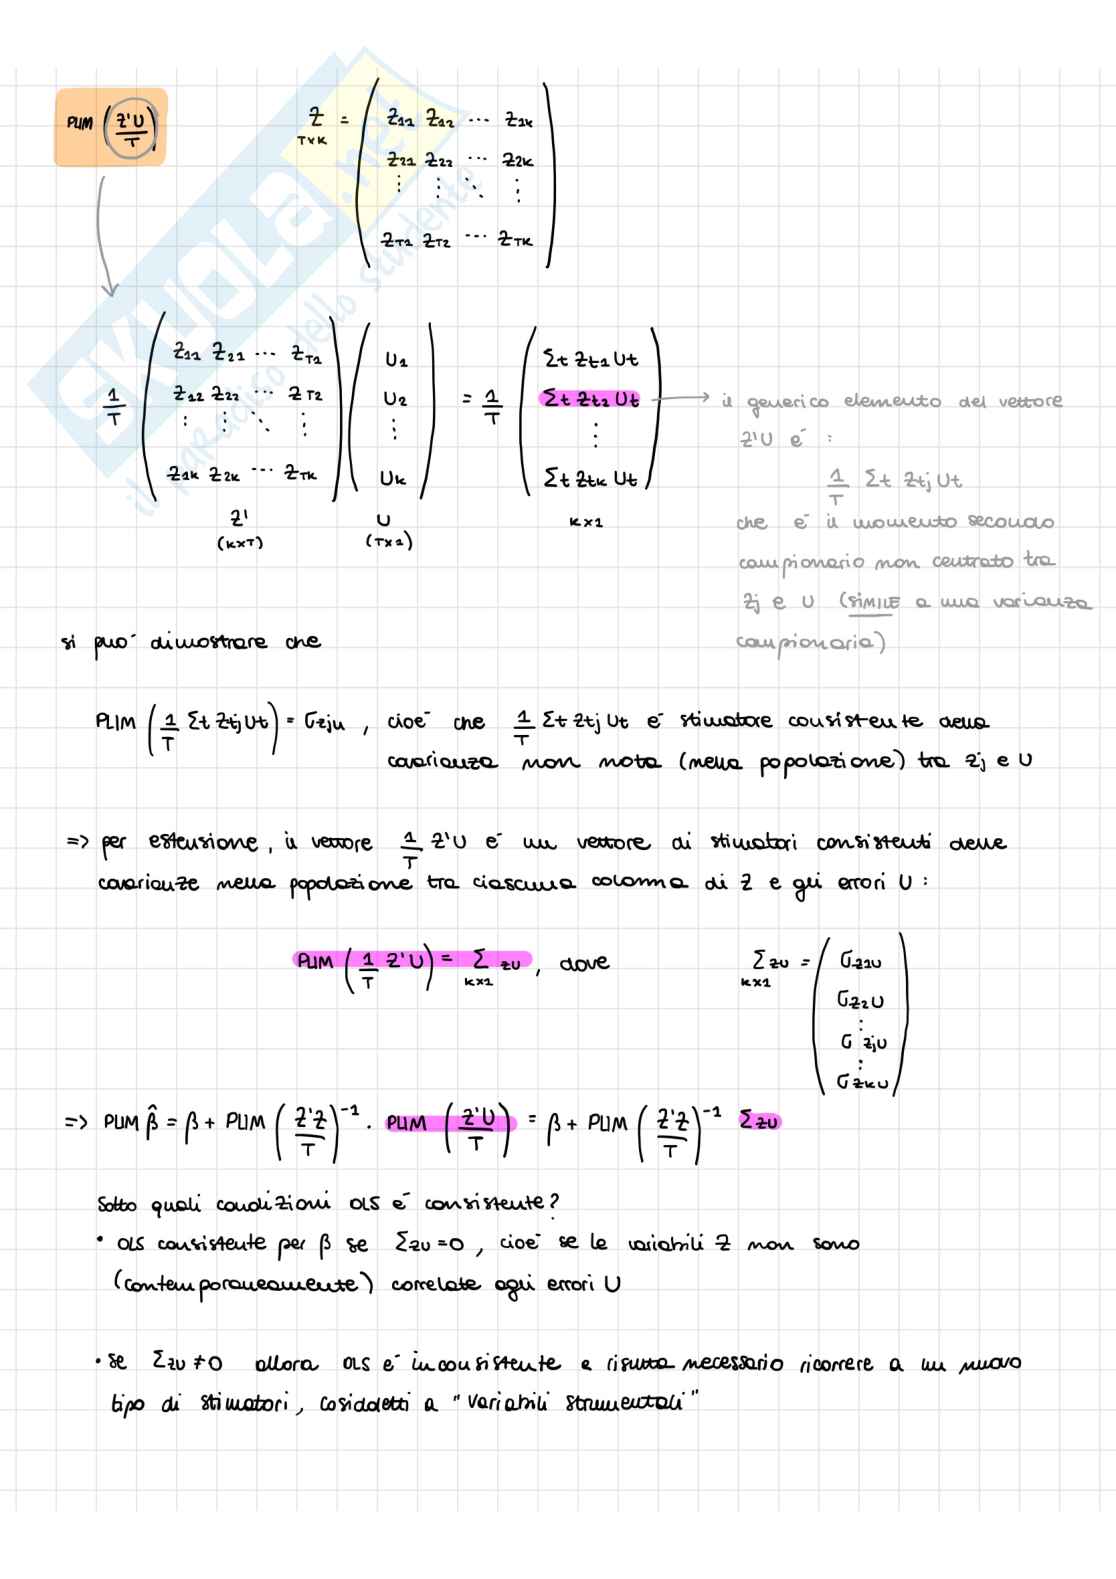 PLIM (Z'U/T)
Z = ( Z11 Z12 ... Z1K
TxK
Z21 Z22 ... Z2K
⋮ ⋮ ⋱ ⋮
ZT1 ZT2 ... ZTK )
SKUOLA.net
il paradiso dello studente
1/T ( Z11 Z21 ... ZT1
Z12 Z22 ... ZT2
⋮ ⋮ ⋱ ⋮
Z1K Z2K ... ZTK )
( U1
U2
⋮
UK )
= 1/T ( Σt Zt1 Ut
Σt Zt2 Ut
⋮
Σt ZtK Ut )
Z'
(KxT)
U
(Tx1)
Kx1
il generico elemento del vettore
Z'U è :
1/T Σt Ztj Ut
che è il momento secondo
campionario non centrato tra
Zj e U (SIMILE a una varianza
campionaria)
si può dimostrare che
PLIM (1/T Σt Ztj Ut) = σzju , cioè che 1/T Σt Ztj Ut è stimatore consistente della
covarianza non nota (nella popolazione) tra Zj e U
=> per estensione, il vettore 1/T Z'U è un vettore di stimatori consistenti delle
covarianze nella popolazione tra ciascuna colonna di Z e gli errori U :
PLIM (1/T Z'U) = Σ ZU , dove
Kx1
Σ ZU = ( σZ1U
Kx1
σZ2U
⋮
σ ZjU
⋮
σ ZKU )
=> PLIM β̂ = β + PLIM (Z'Z/T)⁻¹ · PLIM (Z'U/T) = β + PLIM (Z'Z/T)⁻¹ ΣZU
Sotto quali condizioni OLS è consistente?
• OLS consistente per β se ΣZU = 0 , cioè se le variabili Z non sono
(contemporaneamente) correlate agli errori U
• se ΣZU ≠ 0 allora OLS è inconsistente e risulta necessario ricorrere a un nuovo
tipo di stimatori, cosiddetti a "Variabili strumentali"